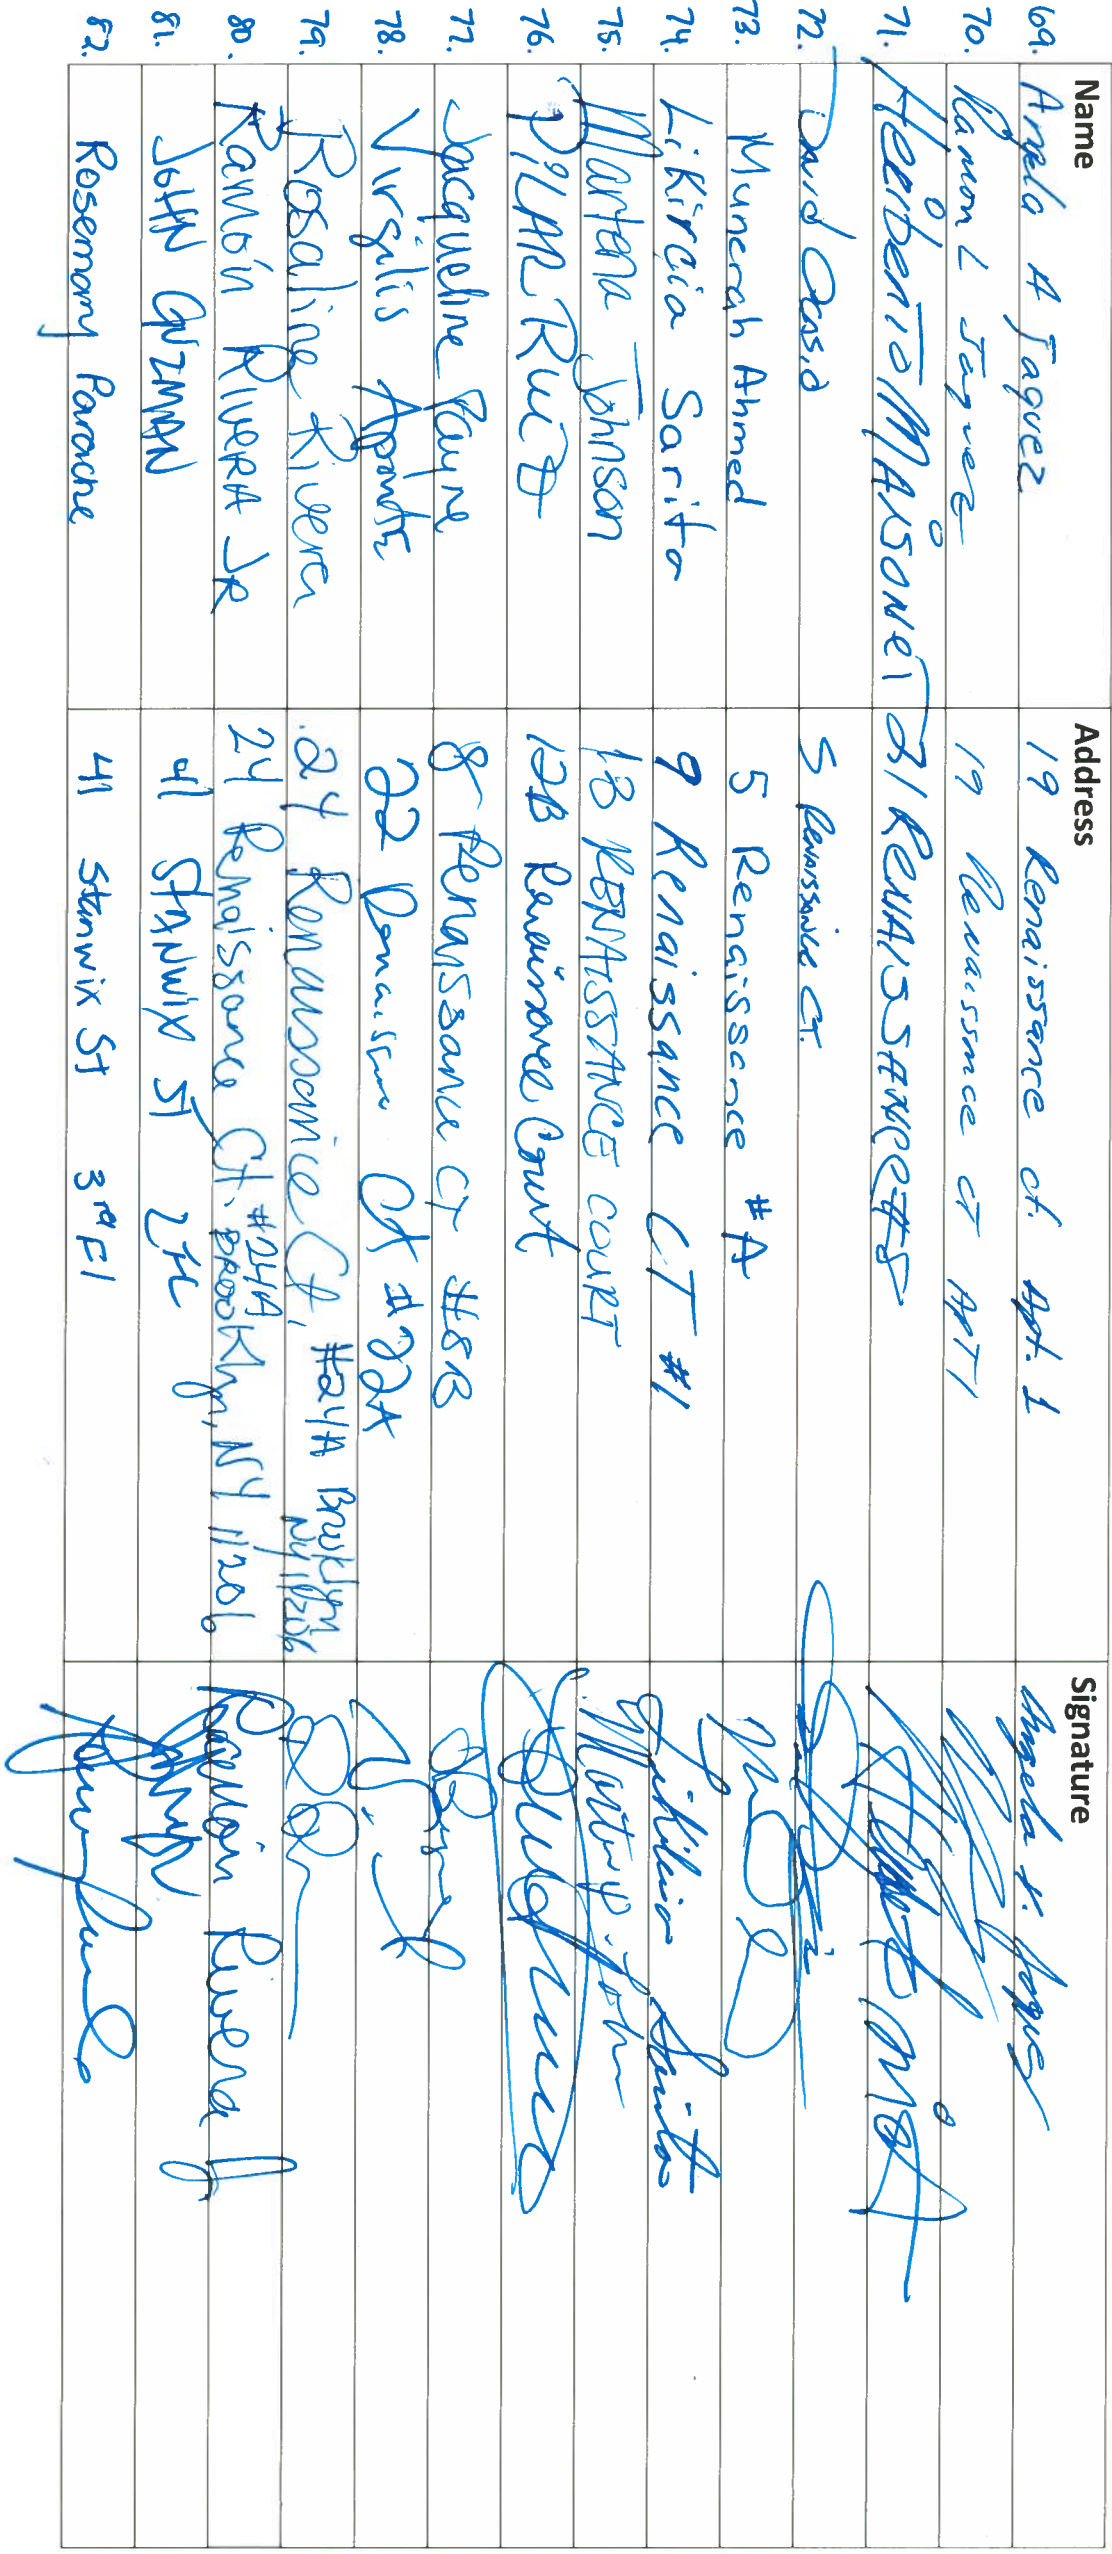 Name Address Signature
69. Angela A Jaquez 19 Renaissance ct. Apt. 1 Angela A. Jaquez
70. Ramon L Jaquez 19 Renaissance CT APT 1
71. Heriberto MAISONET 21 RENAISSANCE #8
72. David Ocasio 5 Renaissance CT.
73. Munerah Ahmed 5 Renaissance #A
74. Likircia Sarito 9 Renaissance CT #1 Likircia Sarito
75. Martena Johnson 18 RENAISSANCE COURT
76. PILAR RUIZ 12B Renaissance Court
77. Jacqueline Payne 8 Renaissance CT #8B
78. Virgilis Aponte 22 Renaissance Ct #22A
79. Rosaline Rivera 24 Renaissance Ct, #24A Brooklyn
NY 11206
80. Ramón RIVERA JR 24 Renaissance Ct. #24A Brooklyn, NY 11206 Ramón Rivera Jr
81. JOHN GUZMAN 41 STANWIX ST
82. Rosemary Parache 41 Stanwix St 3rd Fl